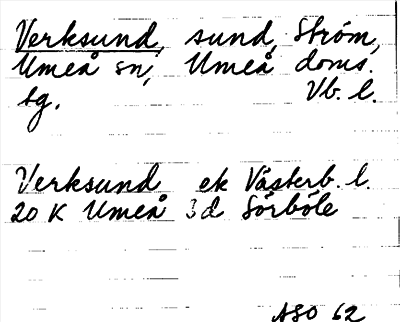 Verksund, sund, Ström,
Umeå sn, Umeå doms.
tg. Vb. l.
Verksund ek Västerb. l.
20 K Umeå 3d Sörböle
ASO 62